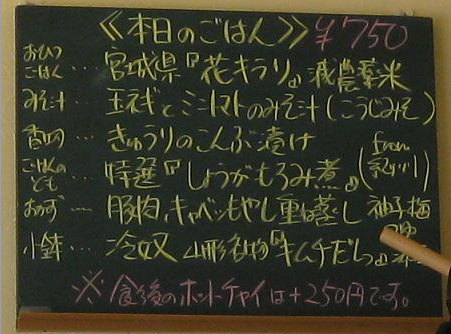 《本日のごはん》 ¥750
おひつごはん … 宮城県『花キラリ』減農薬米
みそ汁 … 玉ネギとミニトマトのみそ汁(こうじみそ)
香物 … きゅうりのこんぶ漬け
ごはんのとも … 特選『しょうがもろみ煮』(from 紀ノ川)
おかず … 豚肉、キャベツ、もやし重ね蒸し 柚子梅
小鉢 … 冷奴 山形名物『キムチだし』
※食後のホットチャイは+250円です。